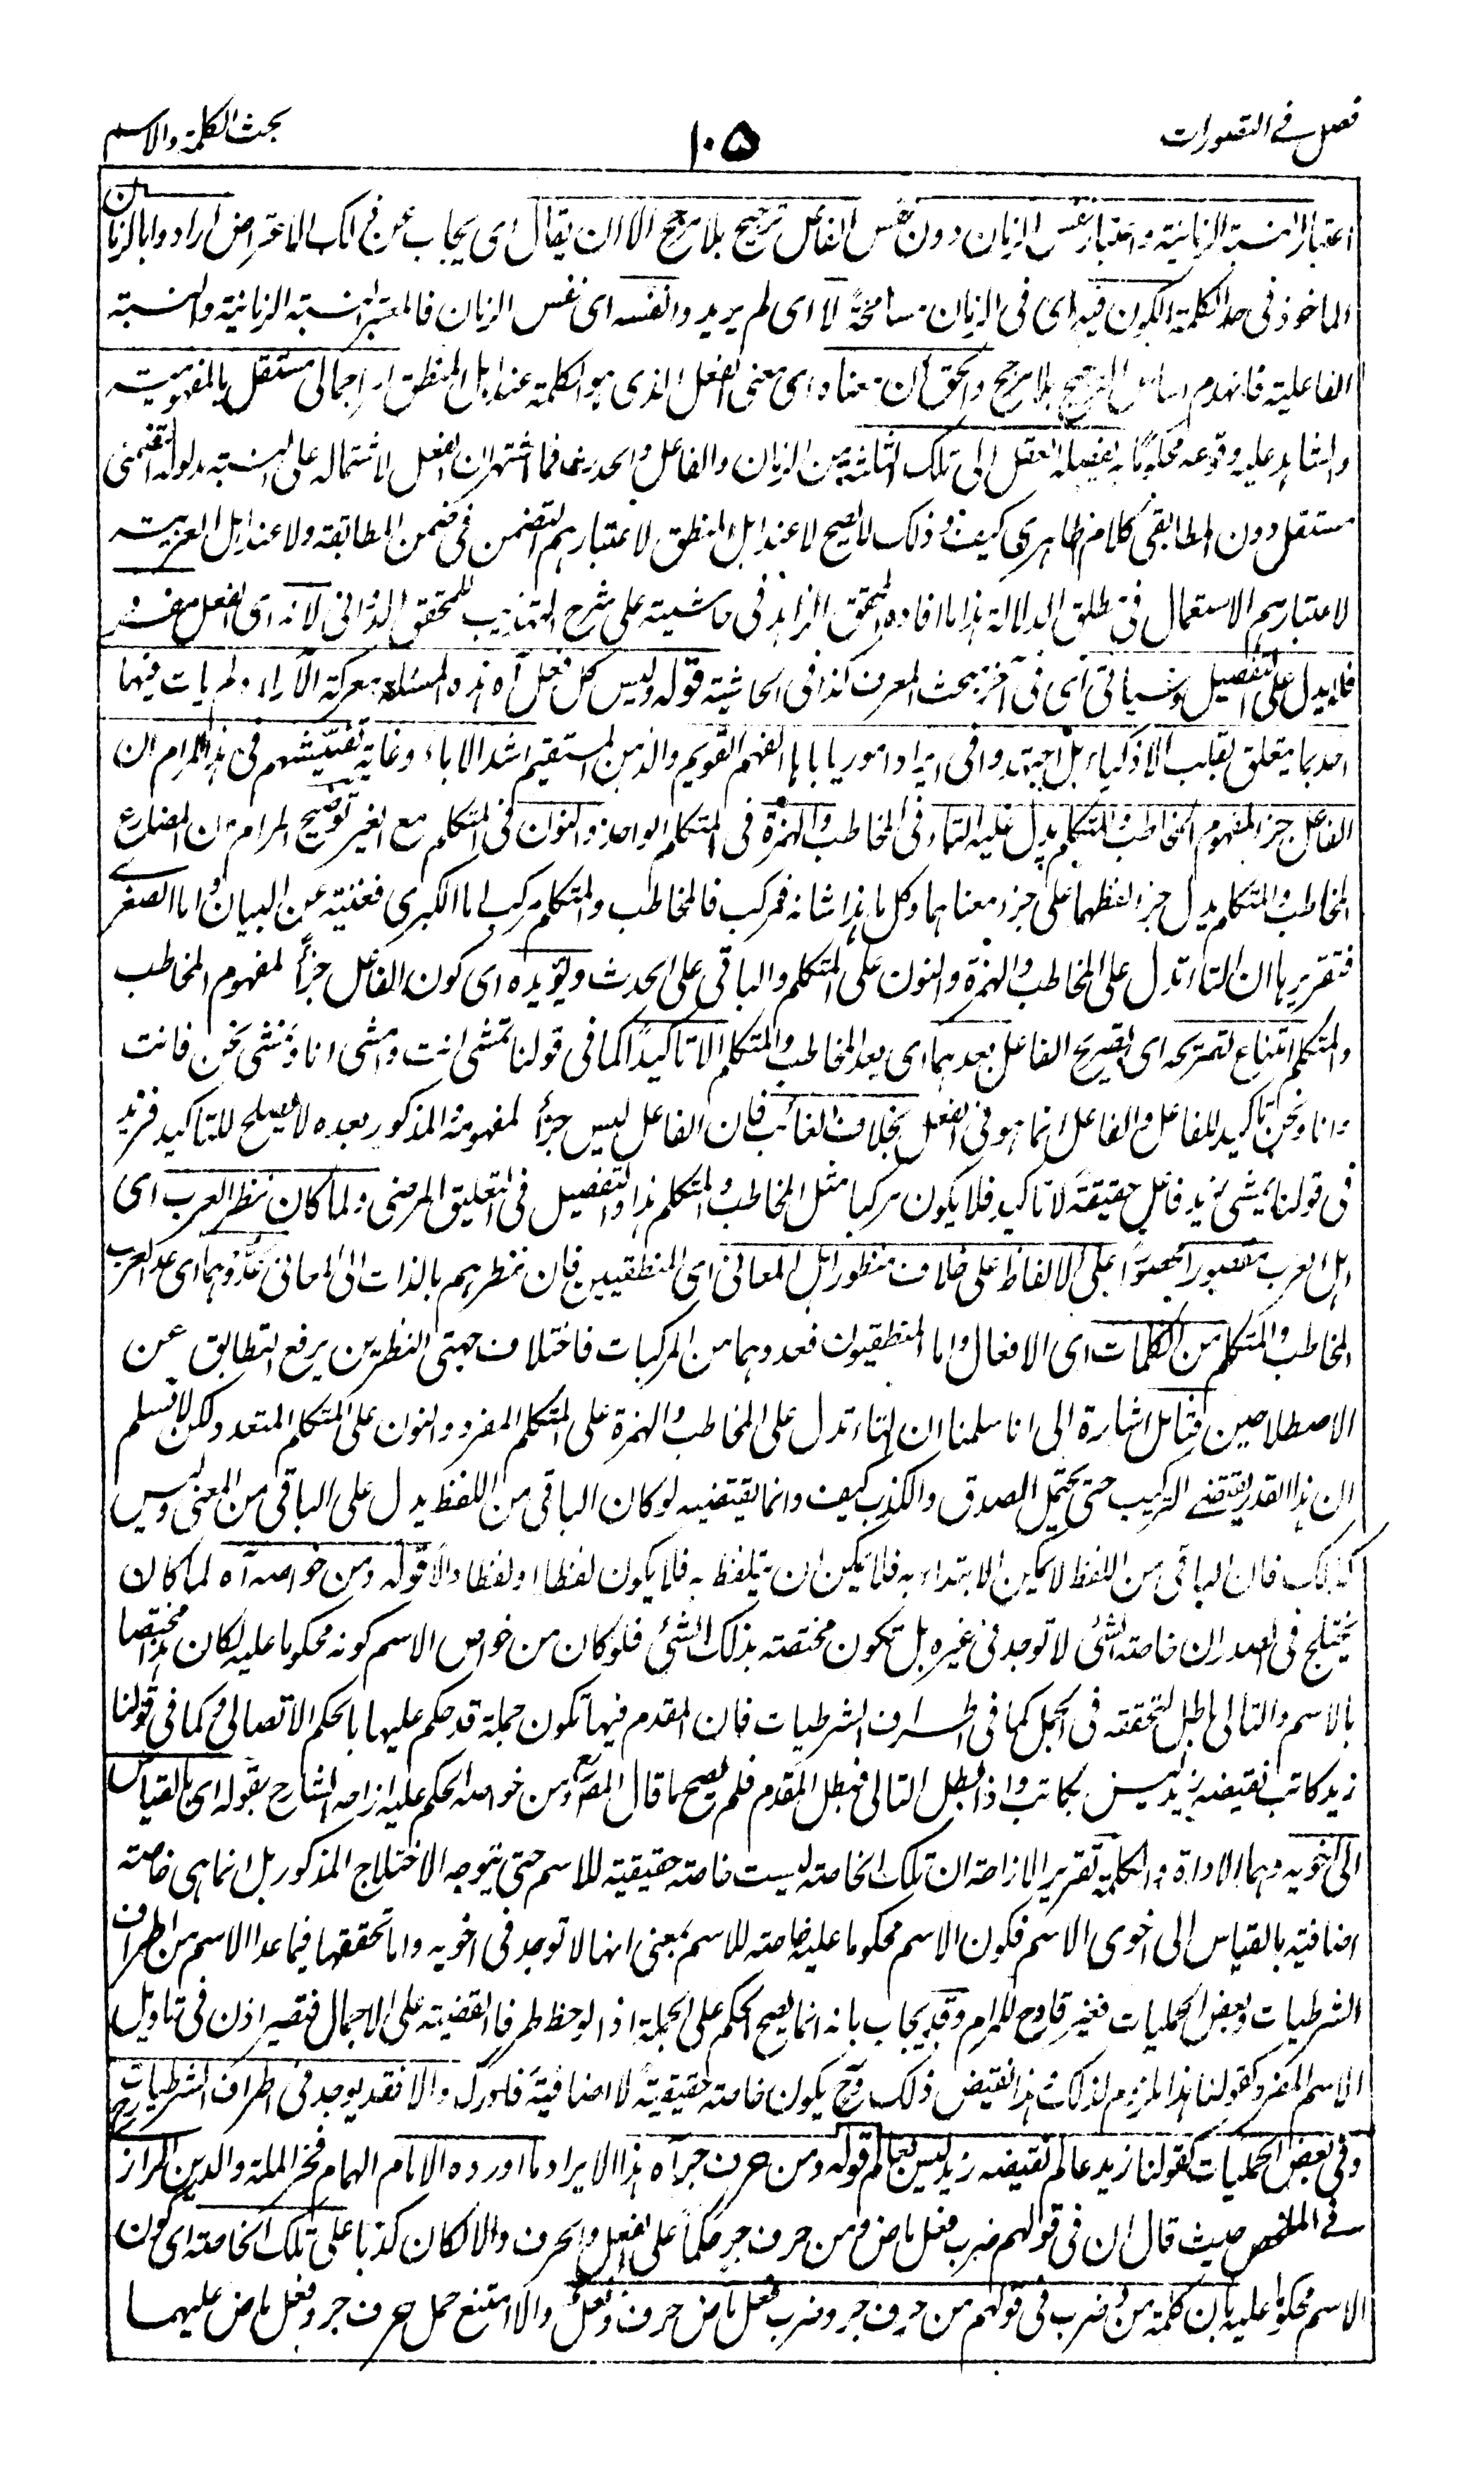 فصل فے التصورات
۱۰۵
بحث الکلمة والاسم
اعتبار النسبة الزمانیة واعتبار نفس الزمان دون نفس الفاعل ترجیح بلا مرجح الا ان یقال ای یجاب عن ذلک الاعتراض ارادوا بالزمان
الماخوذ فی حد الکلمة الکون فیه ای فی الزمان مسامحةً لا ای لم یریدوا نفسه ای نفس الزمان فالمعتبر النسبة الزمانیة والنسبة
الفاعلیة فانهدم اساس الترجیح بلا مرجح والحق ان معناه ای معنی الفعل الذی هو الکلمة عند اهل المنطق امر اجمالی مستقل بالمفهومیة
والشاهد علیه وقوعه محکومًا به یفصله العقل الی تلک الثلثة من الزمان والفاعل والحدث فما اشتهر ان الفعل لاشتماله علی النسبة مدلوله التضمنی
مستقل دون المطابقی کلام ظاهری کیف وذلک لا یصح لا عند اهل المنطق لاعتبارهم التضمن فی ضمن المطابقة ولا عند اهل العربیة
لاعتبارهم الاستعمال فی مطلق الدلالة هذا ما افاده المحقق الزاهد فی حاشیته علی شرح التهذیب للمحقق الدوانی لانه ای الفعل مفرد
فلا یدل علی التفصیل وسیاتی ای فی آخر بحث المعرف کذا فی الحاشیة قوله ولیس کل فعل آه هذه المسئلة معرکة الآراء ولم یات فیها
احد بما یتعلق بقلب الاذکیاء بل اجتهدوا فی ایراد امور یاباها الفهم القویم والذهن المستقیم اشد الاباء وغایة تفتیشهم فی هذا المرام ان
الفاعل جزء لمفهوم المخاطب والمتکلم یدل علیه التاء فی المخاطب والهمزة فی المتکلم الواحد والنون فی المتکلم مع الغیر توضیح المرام ان المضارع
المخاطب والمتکلم یدل جزء لفظهما علی جزء معناهما وکل ما هذا شانه فمرکب فالمخاطب والمتکلم مرکب اما الکبری فغنیة عن البیان واما الصغرے
فتقریرها ان التاء تدل علی المخاطب والهمزة والنون علی المتکلم والباقی علی الحدث ویؤیده ای کون الفاعل جزأً لمفهوم المخاطب
والمتکلم امتناع تصریحه ای تصریح الفاعل بعدهما ای بعد المخاطب والمتکلم الا تاکیدًا کما فی قولنا تمشی انت وامشی انا ونمشی نحن فانت
وانا ونحن تاکید للفاعل والفاعل انما هو فی الفعل بخلاف الغائب فان الفاعل لیس جزأً لمفهومه والمذکور بعده لا یصلح للتاکید فزید
فی قولنا یمشی زید فاعل حقیقةً لا تاکید فلا یکون مرکبا مثل المخاطب والمتکلم هذا والتفصیل فی التعلیق المرضی ولما کان نظر العرب ای
اهل العرب مقصورا محصورًا علی الالفاظ علی خلاف منظور اهل المعانی ای المنطقیین فان نظرهم بالذات الی المعانی عدّوهما ای عد العرب
المخاطب والمتکلم من الکلمات ای الافعال واما المنطقیون فعدوهما من المرکبات فاختلاف جهتی النظرین یرفع التطابق عن
الاصطلاحین فتامل اشارة الی انا سلمنا ان التاء تدل علی المخاطب والهمزة علی المتکلم المفرد والنون علی المتکلم المتعدد ولکن لا نسلم
ان هذا القدر یقتضے الترکیب حتی یحتمل الصدق والکذب کیف وانما یقتضیه لو کان الباقی من اللفظ یدل علی الباقی من المعنی ولیس
کذلک فان الباقی من اللفظ لا یمکن الابتداء به فلا یمکن ان یتلفظ به فلا یکون لفظا او لفظا دالا قوله ومن خواصه آه لما کان
یختلج فی الصدر ان خاصة الشئ لا توجد فی غیره بل تکون مختصة بذلک الشئ فلو کان من خواص الاسم کونه محکوما علیه لکان هذا مختصا
بالاسم والتالی باطل لتحققه فی الجمل کما فی اطراف الشرطیات فان المقدم فیها تکون جملة قد حکم علیها بالحکم الاتصالی وکما فی قولنا
زید کاتب نقیضه زید لیس بکاتب واذا بطل التالی فبطل المقدم فلم یصح ما قال المصنف ومن خواصه الحکم علیه ازاحه الشارح بقوله ای بالقیاس
الی اخویه وهما الاداة والکلمة تقریر الازاحة ان تلک الخاصة لیست خاصة حقیقیة للاسم حتی یتوجه الاختلاج المذکور بل انما هی خاصة
اضافیة بالقیاس الی اخوی الاسم فکون الاسم محکوما علیه خاصة للاسم بمعنی انها لا توجد فی اخویه واما تحققها فیما عدا الاسم من اطراف
الشرطیات وبعض الحملیات فغیر قادح للمرام وقد یجاب بانه انما یصح الحکم علی الجملة اذا لوحظ طرفا القضیة علی الاجمال فتصیر اذن فی تاویل
الاسم المفرد کقولنا هذا ملزوم لذلک وهذا نقیض ذلک وح یکون خاصة حقیقیةً لا اضافیةً فلو رک والا فقد یوجد فی اطراف الشرطیات
وفی بعض الحملیات کقولنا زید عالم نقیضه زید لیس بعالم قوله ومن حرف جر آه هذا الایراد ما اورده الامام الهمام فخر الملة والدین الرازی
فے الملخص حیث قال ان فی قولهم ضرب فعل ماض ومن حرف جر حکمًا علی الفعل والحرف والا لکان کذبا علی تلک الخاصة ای کون
الاسم محکوما علیه بان کلمة من وضرب فی قولهم من حرف جر وضرب فعل ماض حرف وفعل والا امتنع حمل حرف جر وفعل ماض علیهما